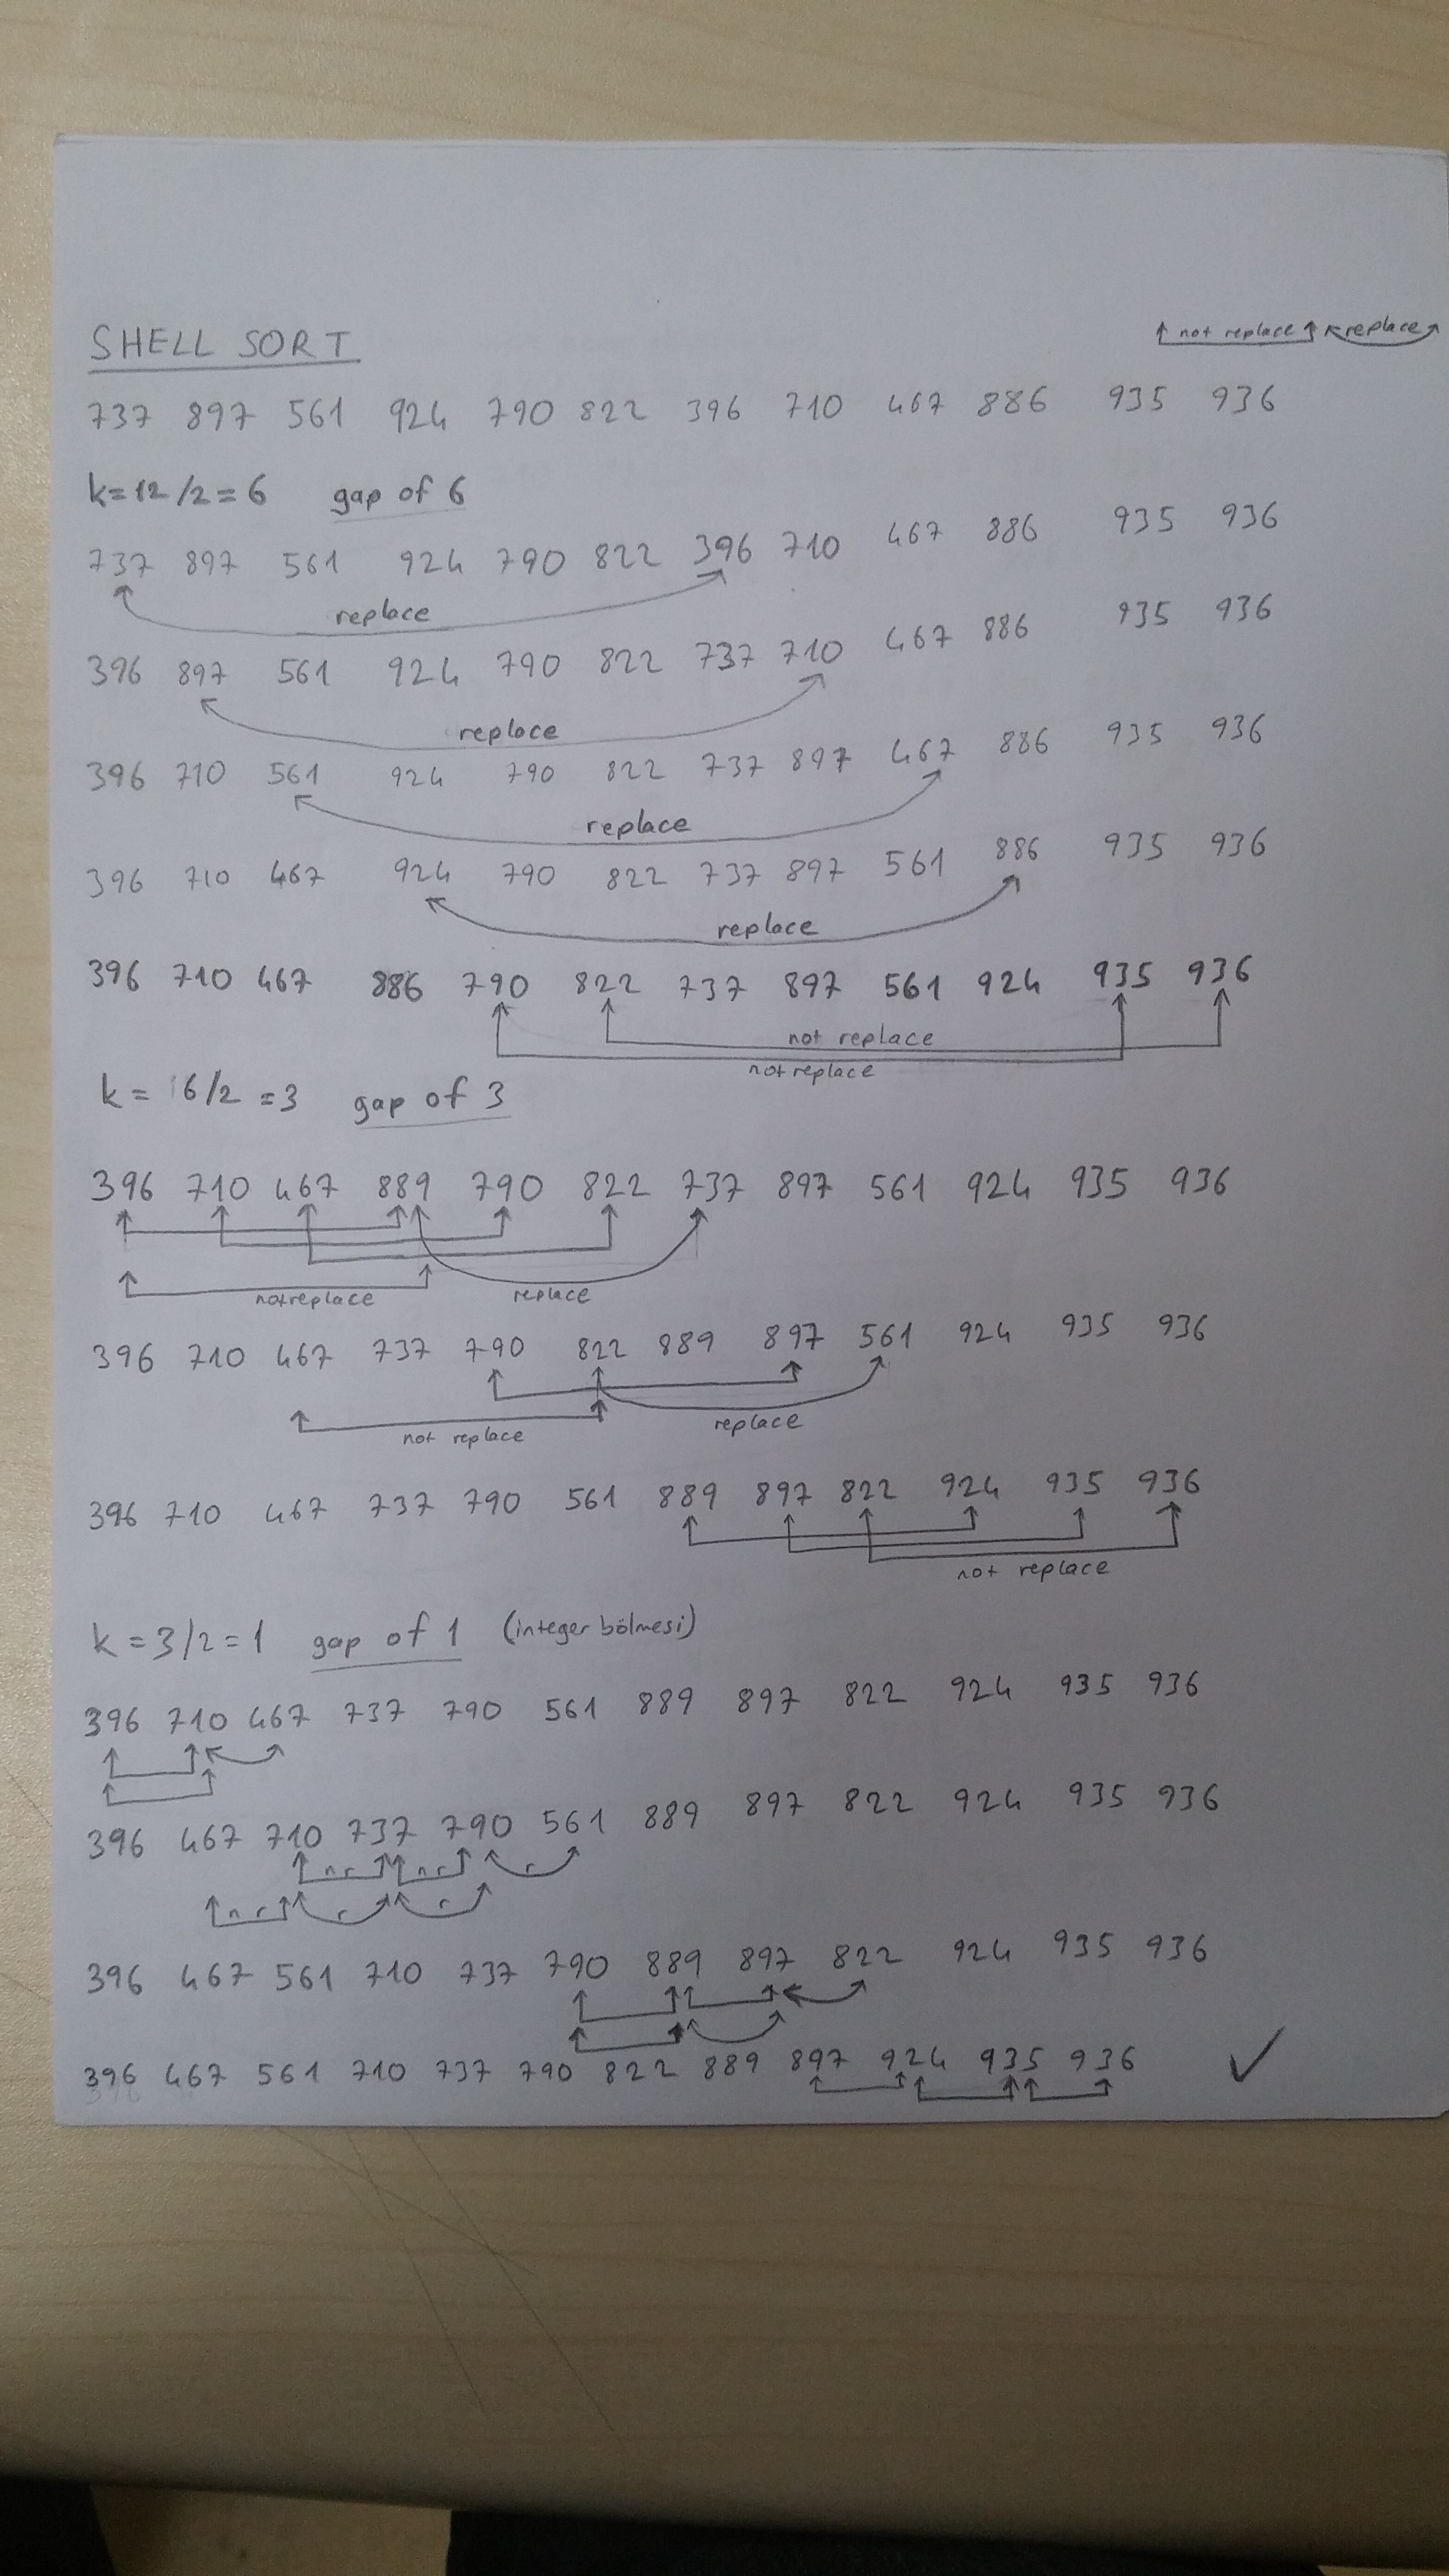 SHELL SORT
not replace replace
737 897 561 924 790 822 396 710 467 886 935 936
k=12/2=6 gap of 6
737 897 561 924 790 822 396 710 467 886 935 936
replace
396 897 561 924 790 822 737 710 467 886 935 936
replace
396 710 561 924 790 822 737 897 467 886 935 936
replace
396 710 467 924 790 822 737 897 561 886 935 936
replace
396 710 467 886 790 822 737 897 561 924 935 936
not replace
not replace
k = 6/2 = 3 gap of 3
396 710 467 889 790 822 737 897 561 924 935 936
not replace replace
396 710 467 737 790 822 889 897 561 924 935 936
not replace replace
396 710 467 737 790 561 889 897 822 924 935 936
not replace
k = 3/2 = 1 gap of 1 (integer bölmesi)
396 710 467 737 790 561 889 897 822 924 935 936
396 467 710 737 790 561 889 897 822 924 935 936
nr nr r
nr r r
396 467 561 710 737 790 889 897 822 924 935 936
396 467 561 710 737 790 822 889 897 924 935 936